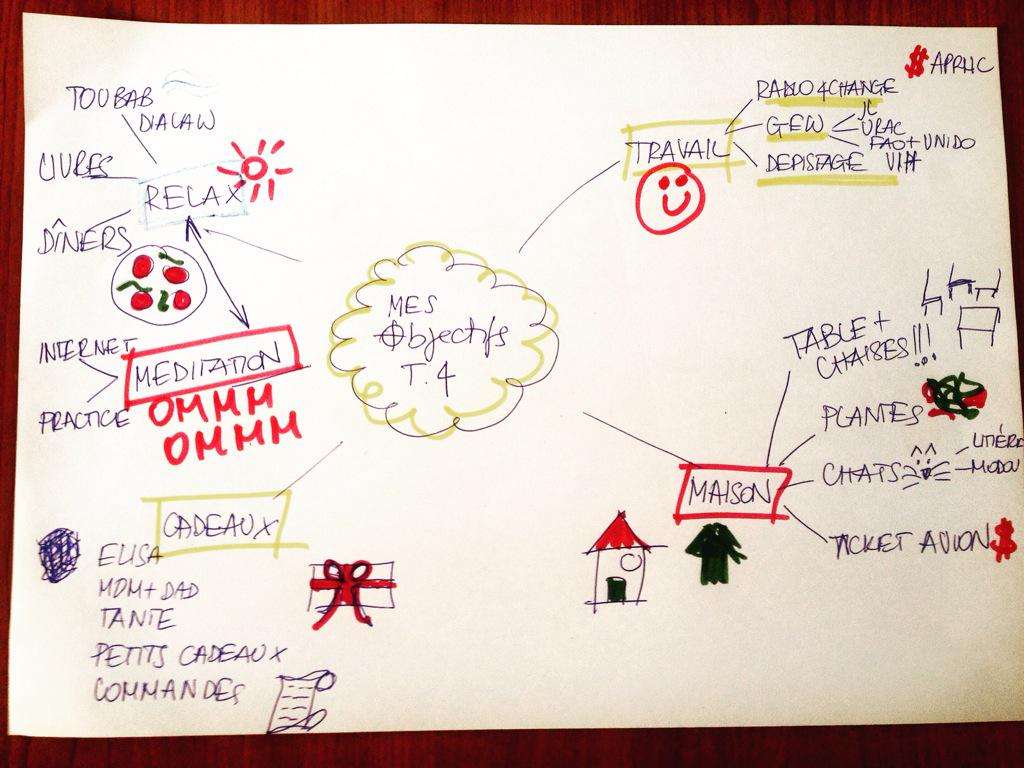 MES
Objectifs
T.4
TRAVAIL
RADIO 4CHANGE
GEW
JL
URAC
FAO+UNIDO
DEPISTAGE VIH
$ APRHC
MAISON
TABLE +
CHAISES!!!
PLANTES
CHATS
LITIÈRE
MODOU
TICKET AVION $
RELAX
TOUBAB
DIALAW
LIVRES
DÎNERS
MEDITATION
INTERNET
PRACTICE
OMMM
OMMM
CADEAUX
ELISA
MOM+DAD
TANTE
PETITS CADEAUX
COMMANDES